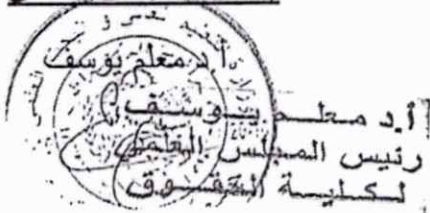 أ.د معلم يوسف
أ.د معلم يوسف
رئيس المجلس العلمي
لكلية الحقوق